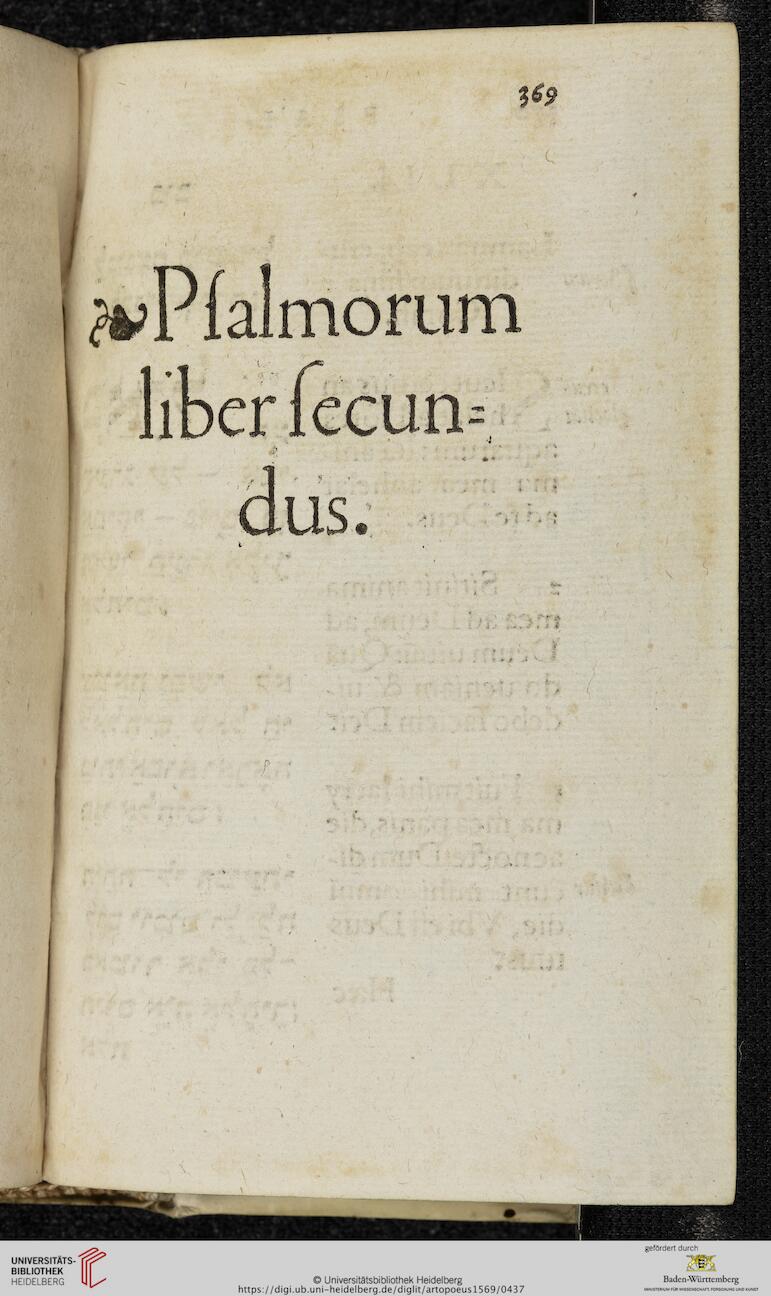 369
❧Pſalmorum
liber ſecun=
dus.
UNIVERSITÄTS-
BIBLIOTHEK
HEIDELBERG
© Universitätsbibliothek Heidelberg
https://digi.ub.uni-heidelberg.de/diglit/artopoeus1569/0437
gefördert durch
Baden-Württemberg
MINISTERIUM FÜR WISSENSCHAFT, FORSCHUNG UND KUNST